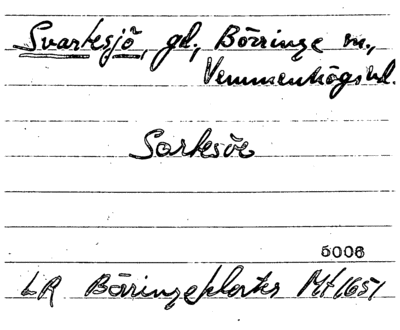 Svartesjö, gd., Börringe sn.,
Vemmenhögs hd.
Sortesöe
5006
LR Börringekloster Mt 1651